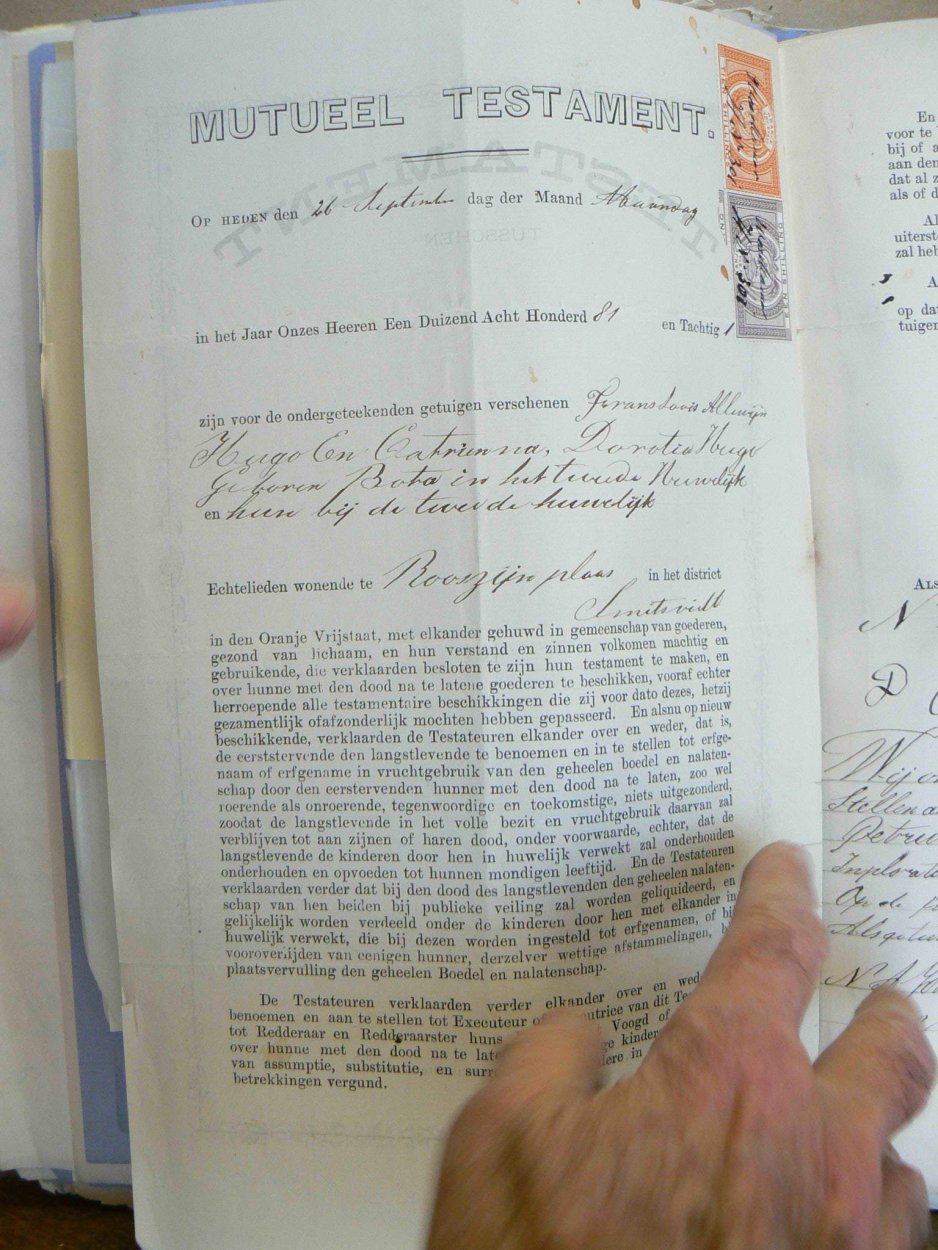 MUTUEEL TESTAMENT.
OP HEDEN den 26 September dag der Maand Maanday
in het Jaar Onzes Heeren Een Duizend Acht Honderd 81 en Tachtig 1
zijn voor de ondergeteekenden getuigen verschenen Frans Lovis Allewijn
Hugo En Catrienna, Dorotia Hugo
Geboren Bota in het tweede Huwelijk
en hun bij de tweede huwelijk
Echtelieden wonende te Rooszijn plaas in het district
Smitsvidt
in den Oranje Vrijstaat, met elkander gehuwd in gemeenschap van goederen,
gezond van lichaam, en hun verstand en zinnen volkomen machtig en
gebruikende, die verklaarden besloten te zijn hun testament te maken, en
over hunne met den dood na te latene goederen te beschikken, vooraf echter
herroepende alle testamentaire beschikkingen die zij voor dato dezes, hetzij
gezamentlijk ofafzonderlijk mochten hebben gepasseerd. En alsnu op nieuw
beschikkende, verklaarden de Testateuren elkander over en weder, dat is,
de eerststervende den langstlevende te benoemen en in te stellen tot erfge-
naam of erfgename in vruchtgebruik van den geheelen boedel en nalaten-
schap door den eerstervenden hunner met den dood na te laten, zoo wel
roerende als onroerende, tegenwoordige en toekomstige, niets uitgezonderd,
zoodat de langstlevende in het volle bezit en vruchtgebruik daarvan zal
verblijven tot aan zijnen of haren dood, onder voorwaarde, echter, dat de
langstlevende de kinderen door hen in huwelijk verwekt zal onderhouden
onderhouden en opvoeden tot hunnen mondigen leeftijd. En de Testateuren
verklaarden verder dat bij den dood des langstlevenden den geheelen nalaten-
schap van hen beiden bij publieke veiling zal worden geliquideerd, en
gelijkelijk worden verdeeld onder de kinderen door hen met elkander in
huwelijk verwekt, die bij dezen worden ingesteld tot erfgenamen, of bi
vooroverlijden van eenigen hunner, derzelver wettige afstammelingen, b
plaatsvervulling den geheelen Boedel en nalatenschap.
De Testateuren verklaarden verder elkander over en wed
benoemen en aan te stellen tot Executeur o utrice van dit Te
tot Redderaar en Redderaarster huns Voogd of
over hunne met den dood na te late ge kinder
van assumptie, substitutie, en surr dere in
betrekkingen vergund.
EEN SHILLING
En
voor te
bij of a
aan den
dat al z
als of d
Al
uiterst
zal heb
A
op dat
tuigen
ALS
N
D
Wij o
Stellen a
Petru
Op de p
Als getu